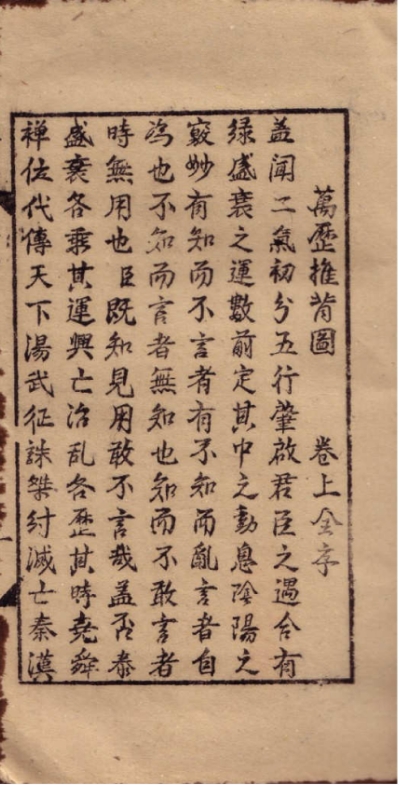 萬歷推背圖 卷上全序
盖聞二氣初分五行肇啟君臣之遇合有
緣盛衰之運數前定其中之動息陰陽之
竅妙有知而不言者有不知而亂言者自
為也不知而言者無知也知而不敢言者
時無用也臣既知見用敢不言哉盖否泰
盛衰各乘其運興亡治乱各歷其時堯舜
禅位代傳天下湯武征誅桀紂滅亡秦漢